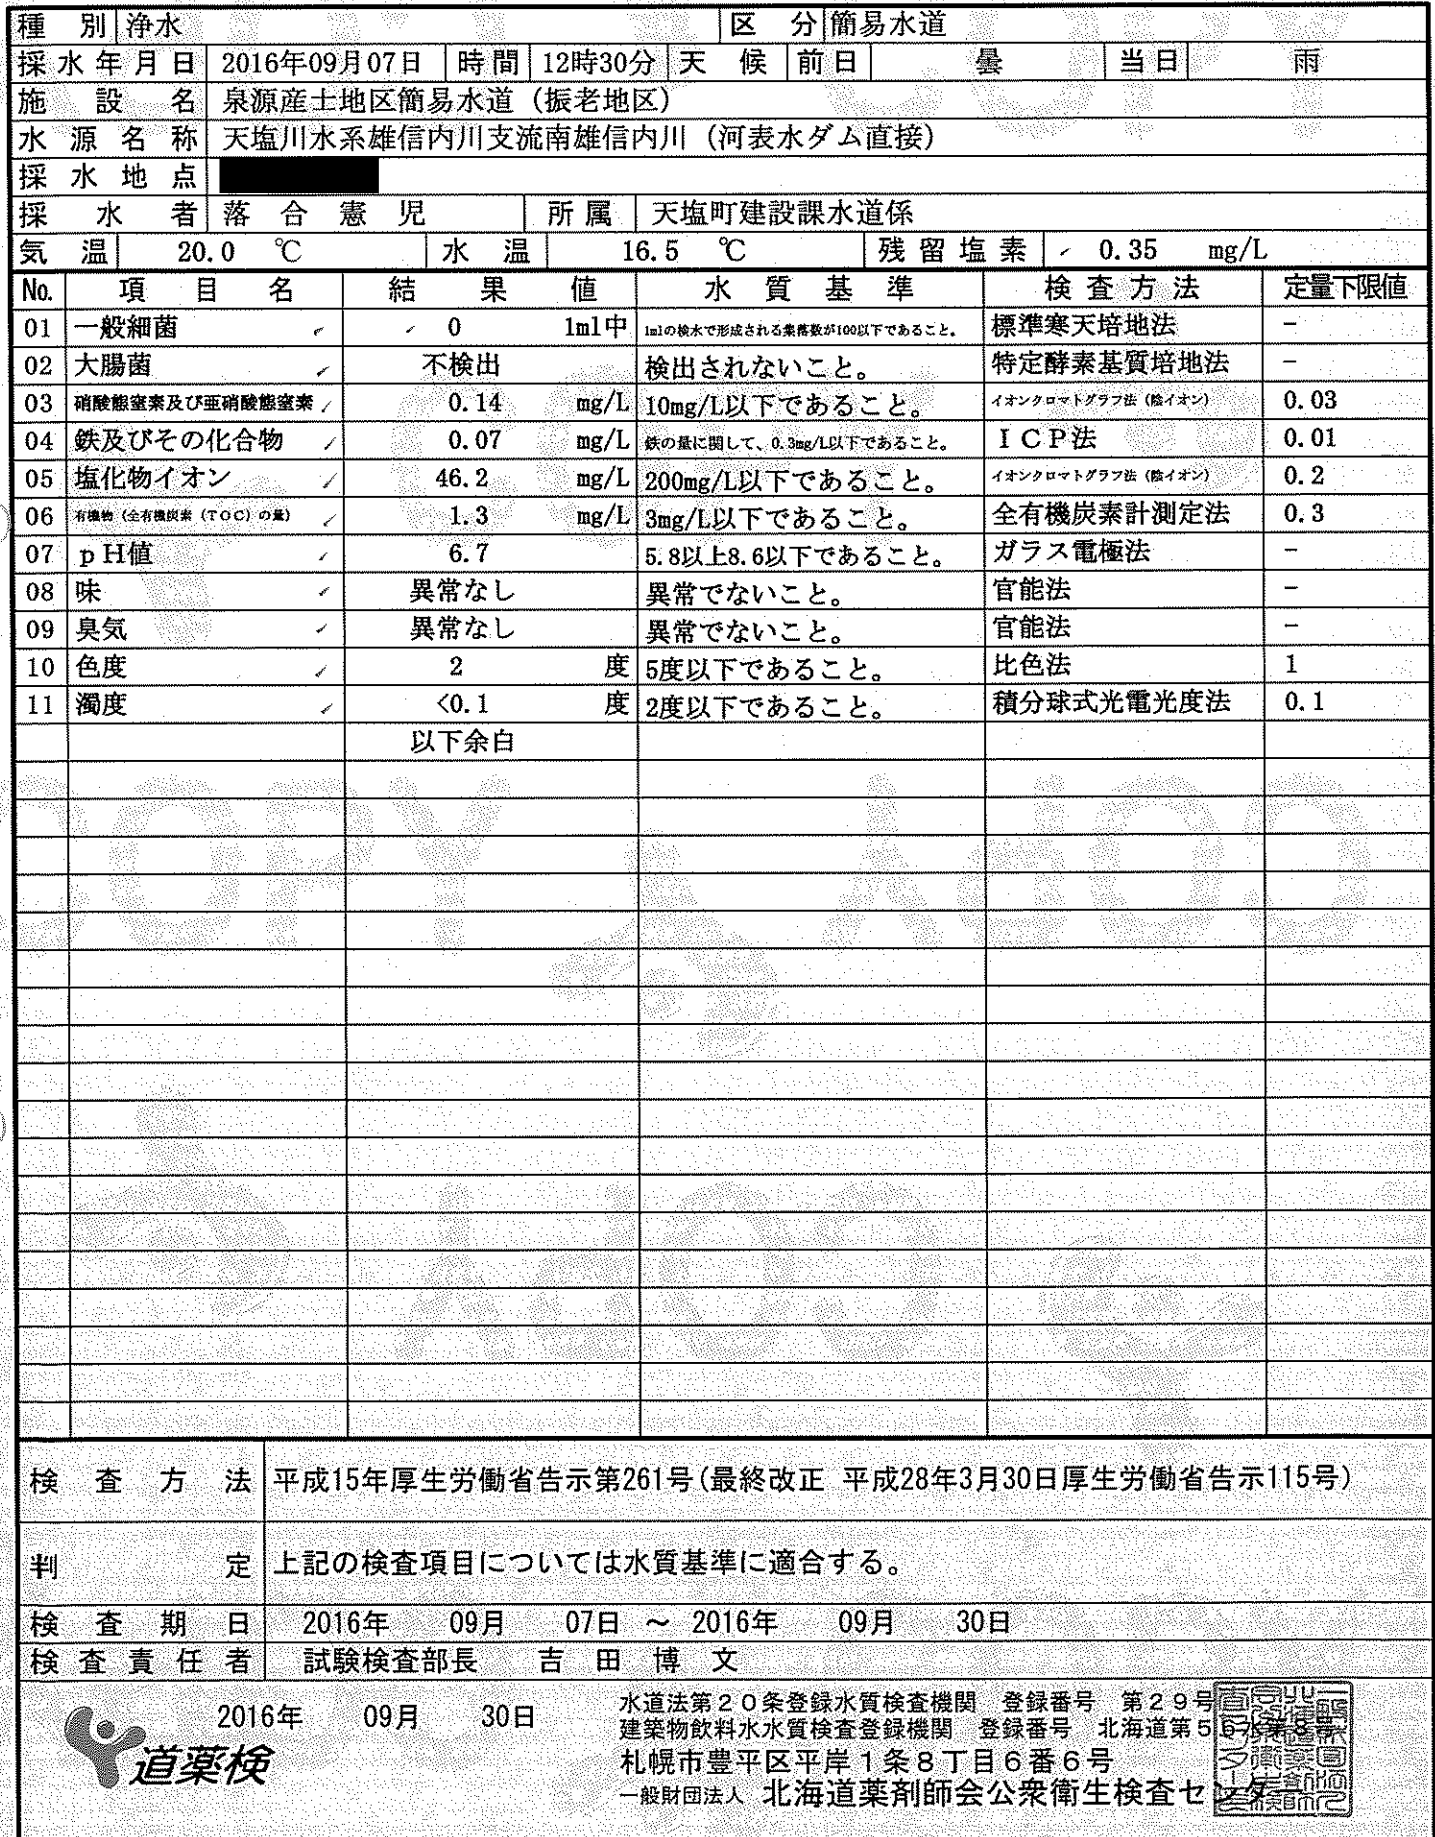 種別 浄水 区分 簡易水道
採水年月日 2016年09月07日 時間 12時30分 天候 前日 曇 当日 雨
施設名 泉源産士地区簡易水道（振老地区）
水源名称 天塩川水系雄信内川支流南雄信内川（河表水ダム直接）
採水地点
採水者 落合憲児 所属 天塩町建設課水道係
気温 20.0 ℃ 水温 16.5 ℃ 残留塩素 0.35 mg/L
No. 項目名 結果値 水質基準 検査方法 定量下限値
01 一般細菌 0 1ml中 1mlの検水で形成される集落数が100以下であること。 標準寒天培地法 −
02 大腸菌 不検出 検出されないこと。 特定酵素基質培地法 −
03 硝酸態窒素及び亜硝酸態窒素 0.14 mg/L 10mg/L以下であること。 イオンクロマトグラフ法（陰イオン） 0.03
04 鉄及びその化合物 0.07 mg/L 鉄の量に関して、0.3mg/L以下であること。 ＩＣＰ法 0.01
05 塩化物イオン 46.2 mg/L 200mg/L以下であること。 イオンクロマトグラフ法（陰イオン） 0.2
06 有機物（全有機炭素（TOC）の量） 1.3 mg/L 3mg/L以下であること。 全有機炭素計測定法 0.3
07 ｐH値 6.7 5.8以上8.6以下であること。 ガラス電極法 −
08 味 異常なし 異常でないこと。 官能法 −
09 臭気 異常なし 異常でないこと。 官能法 −
10 色度 2 度 5度以下であること。 比色法 1
11 濁度 <0.1 度 2度以下であること。 積分球式光電光度法 0.1
以下余白
検査方法 平成15年厚生労働省告示第261号(最終改正 平成28年3月30日厚生労働省告示115号)
判定 上記の検査項目については水質基準に適合する。
検査期日 2016年 09月 07日 ～ 2016年 09月 30日
検査責任者 試験検査部長 吉田博文
2016年 09月 30日
道薬検
水道法第２０条登録水質検査機関 登録番号 第２９号
建築物飲料水水質検査登録機関 登録番号 北海道第５６水第８号
札幌市豊平区平岸１条８丁目６番６号
一般財団法人 北海道薬剤師会公衆衛生検査センター